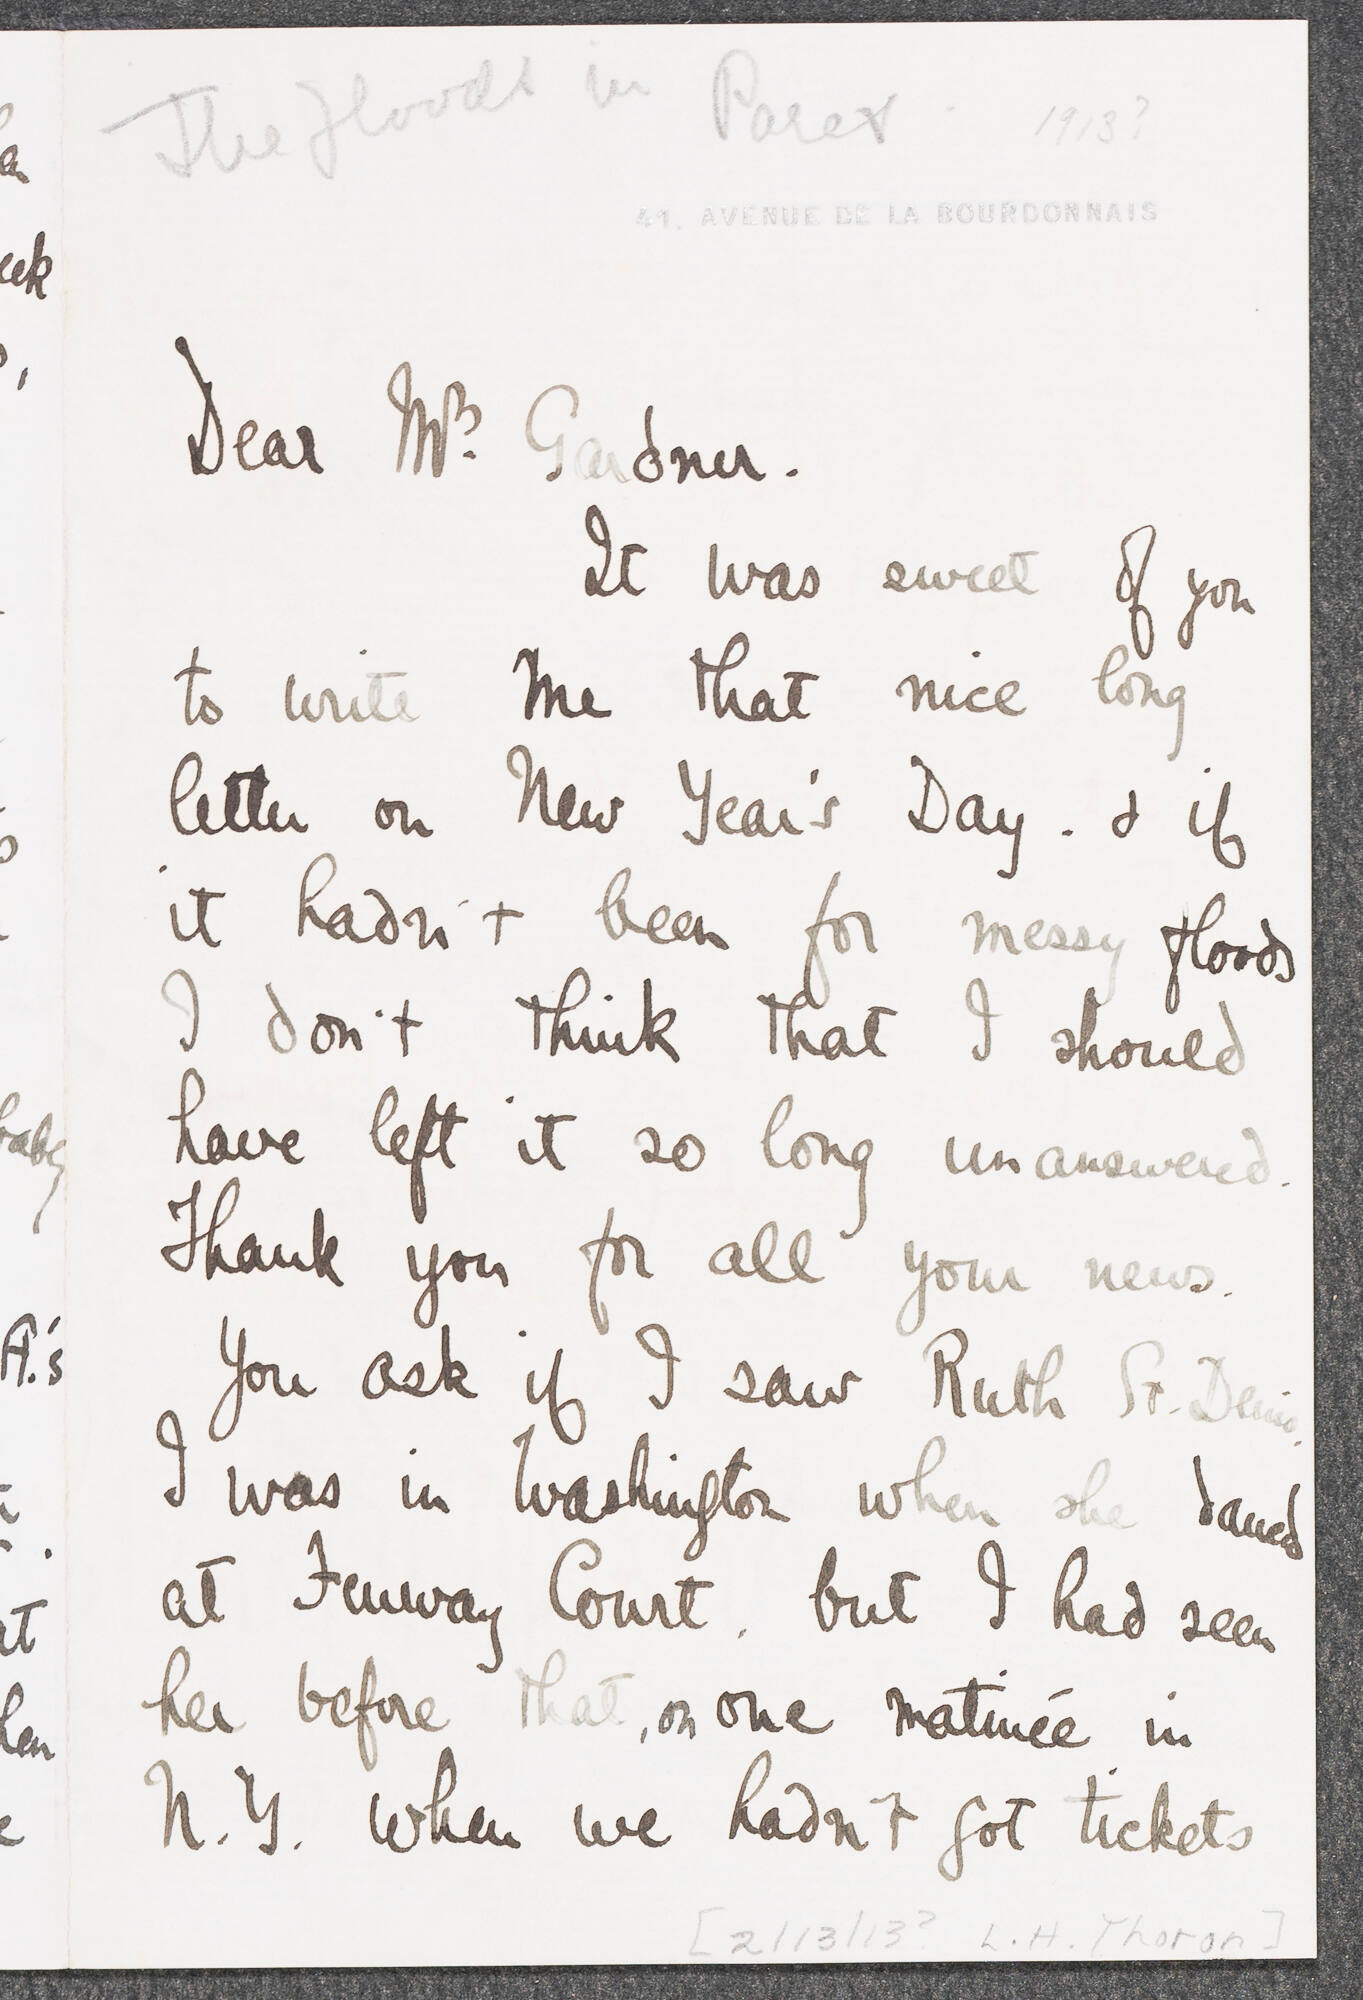 The floods in Paris. 1913?
41. AVENUE DE LA BOURDONNAIS
Dear Mrs. Gardner.
It was sweet of you
to write me that nice long
letter on New Year's Day. & if
it hadn't been for messy floods
I don't think that I should
have left it so long unanswered.
Thank you for all your news.
You ask if I saw Ruth St. Denis.
I was in Washington when she danced
at Fenway Court, but I had seen
her before that, on one matinée in
N.Y. when we hadn't got tickets
[2/13/13? L.H. Thoron]
eek
baby
A.'s